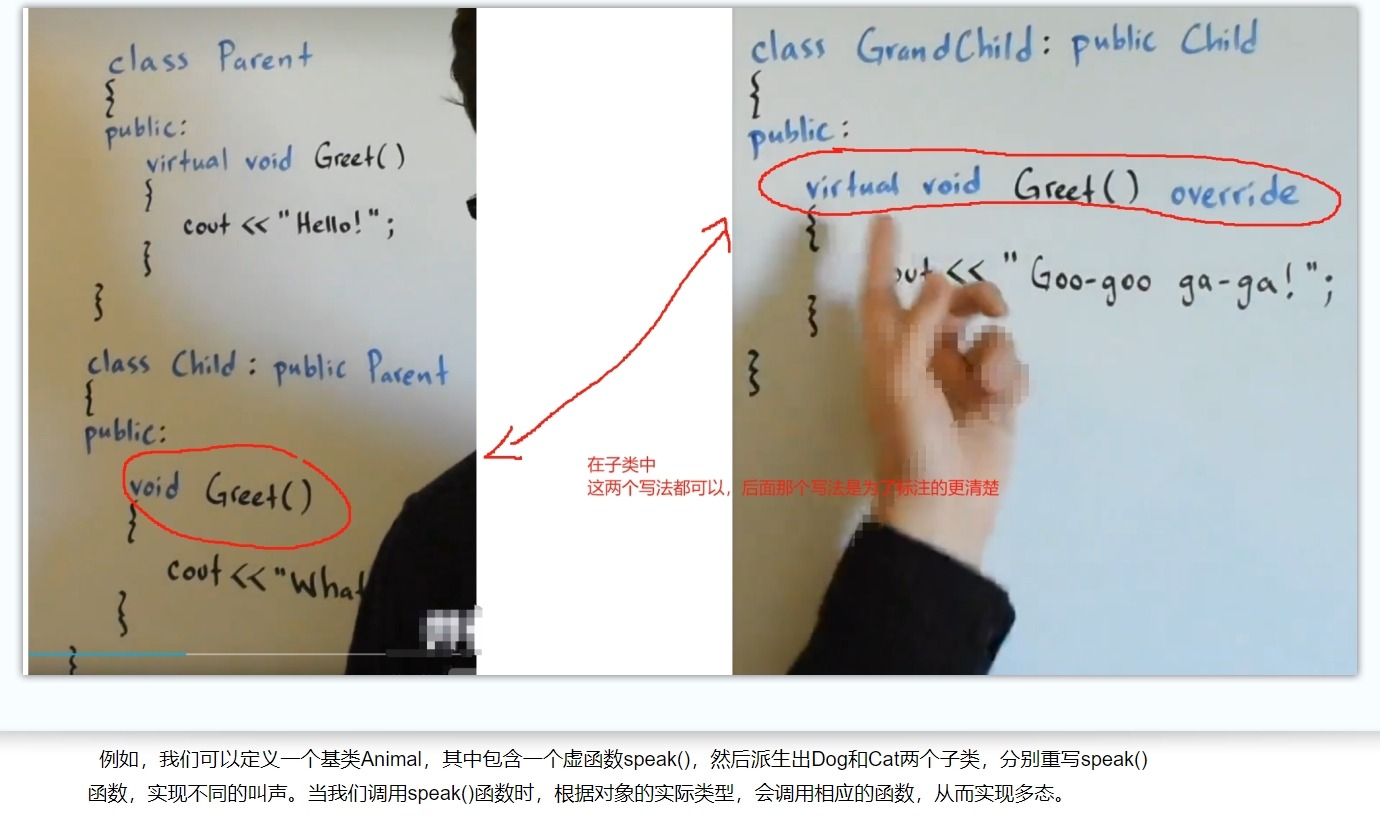 class Parent
{
public:
virtual void Greet()
{
cout << "Hello!";
}
}
class Child: public Parent
{
public:
void Greet()
{
cout <<"What
}
}
class GrandChild: public Child
{
public:
virtual void Greet() override
{
<< "Goo-goo ga-ga!";
}
}
在子类中
这两个写法都可以，后面那个写法是为了标注的更清楚
例如，我们可以定义一个基类Animal，其中包含一个虚函数speak()，然后派生出Dog和Cat两个子类，分别重写speak()
函数，实现不同的叫声。当我们调用speak()函数时，根据对象的实际类型，会调用相应的函数，从而实现多态。